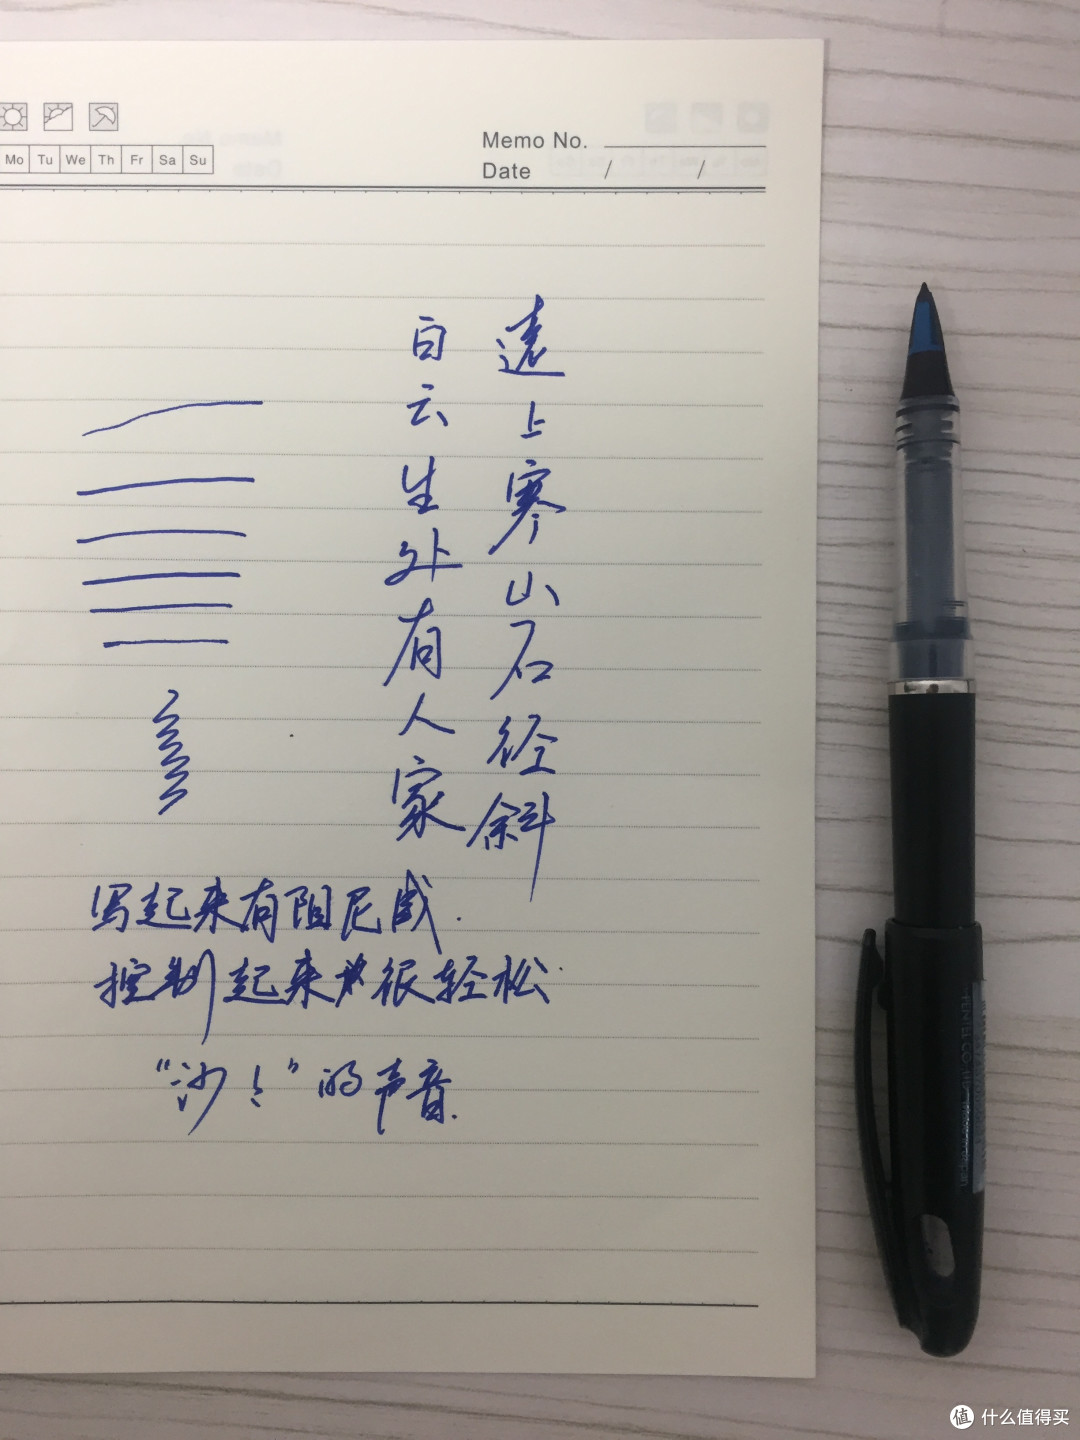 Memo No.
Mo Tu We Th Fr Sa Su
Date / /
遠上寒山石径斜
白云生处有人家
写起来有阻尼感.
控制起来很轻松.
“沙！”的声音.
值 什么值得买